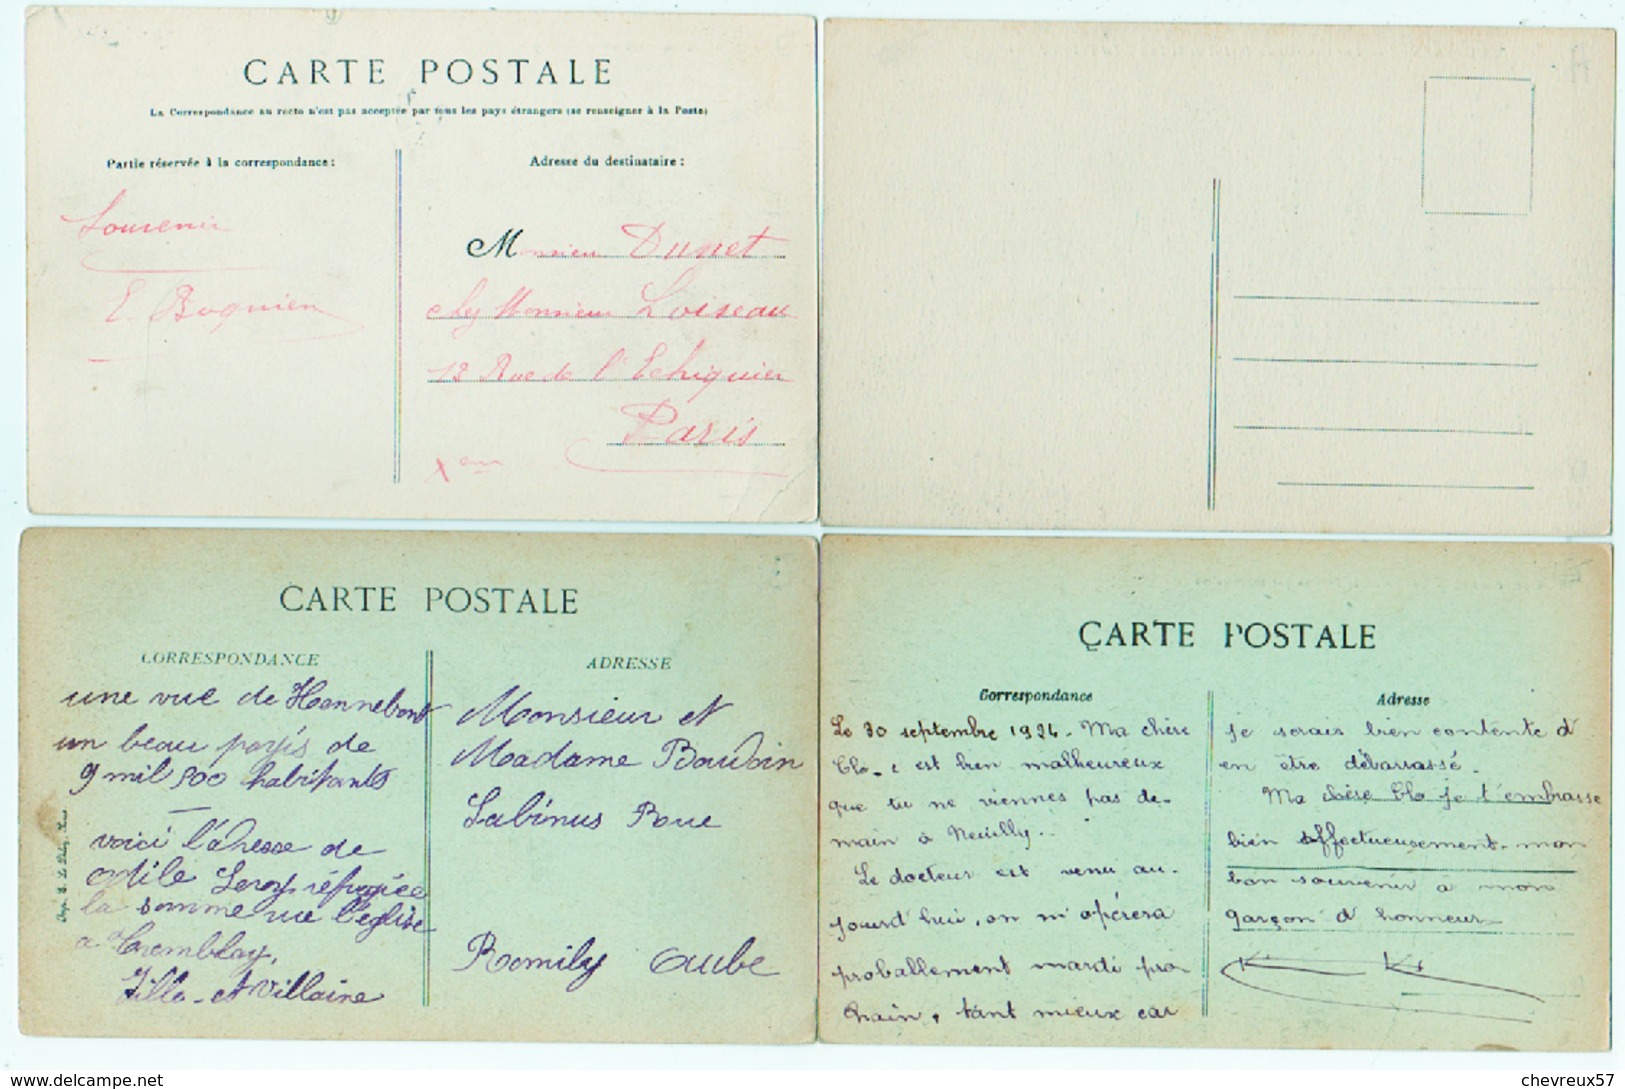 CARTE POSTALE
La Correspondance au recto n'est pas acceptée par tous les pays étrangers (se renseigner à la Poste)
Partie réservée à la correspondance :
Adresse du destinataire :
Souvenir
E. Boquien
Monsieur Dunet
chez Monsieur Loiseau
12 Rue de l'Echiquier
Paris
Xème
CARTE POSTALE
CORRESPONDANCE
ADRESSE
une vue de Hennebont
un beau payis de
9 mil 500 habitants
voici l'adresse de
odile Leroy réfugiée
la somme rue l'église
a Tremblay,
Jille-et Villaine
Monsieur et
Madame Baudoin
Sabinus Roue
Romily Aube
CARTE POSTALE
Correspondance
Adresse
Le 30 septembre 1924. Ma chère
Clo - c est bien malheureux
que tu ne viennes pas de-
main à Neuilly..
Le docteur est venu au-
jourd'hui, on m'opérera
proballement mardi pro-
chain, tant mieux car
je serais bien contente d'
en être débarrassé.
Ma chère Clo je t'embrasse
bien affectueusement. mon
bon souvenir à mon
garçon d'honneur
chevreux57